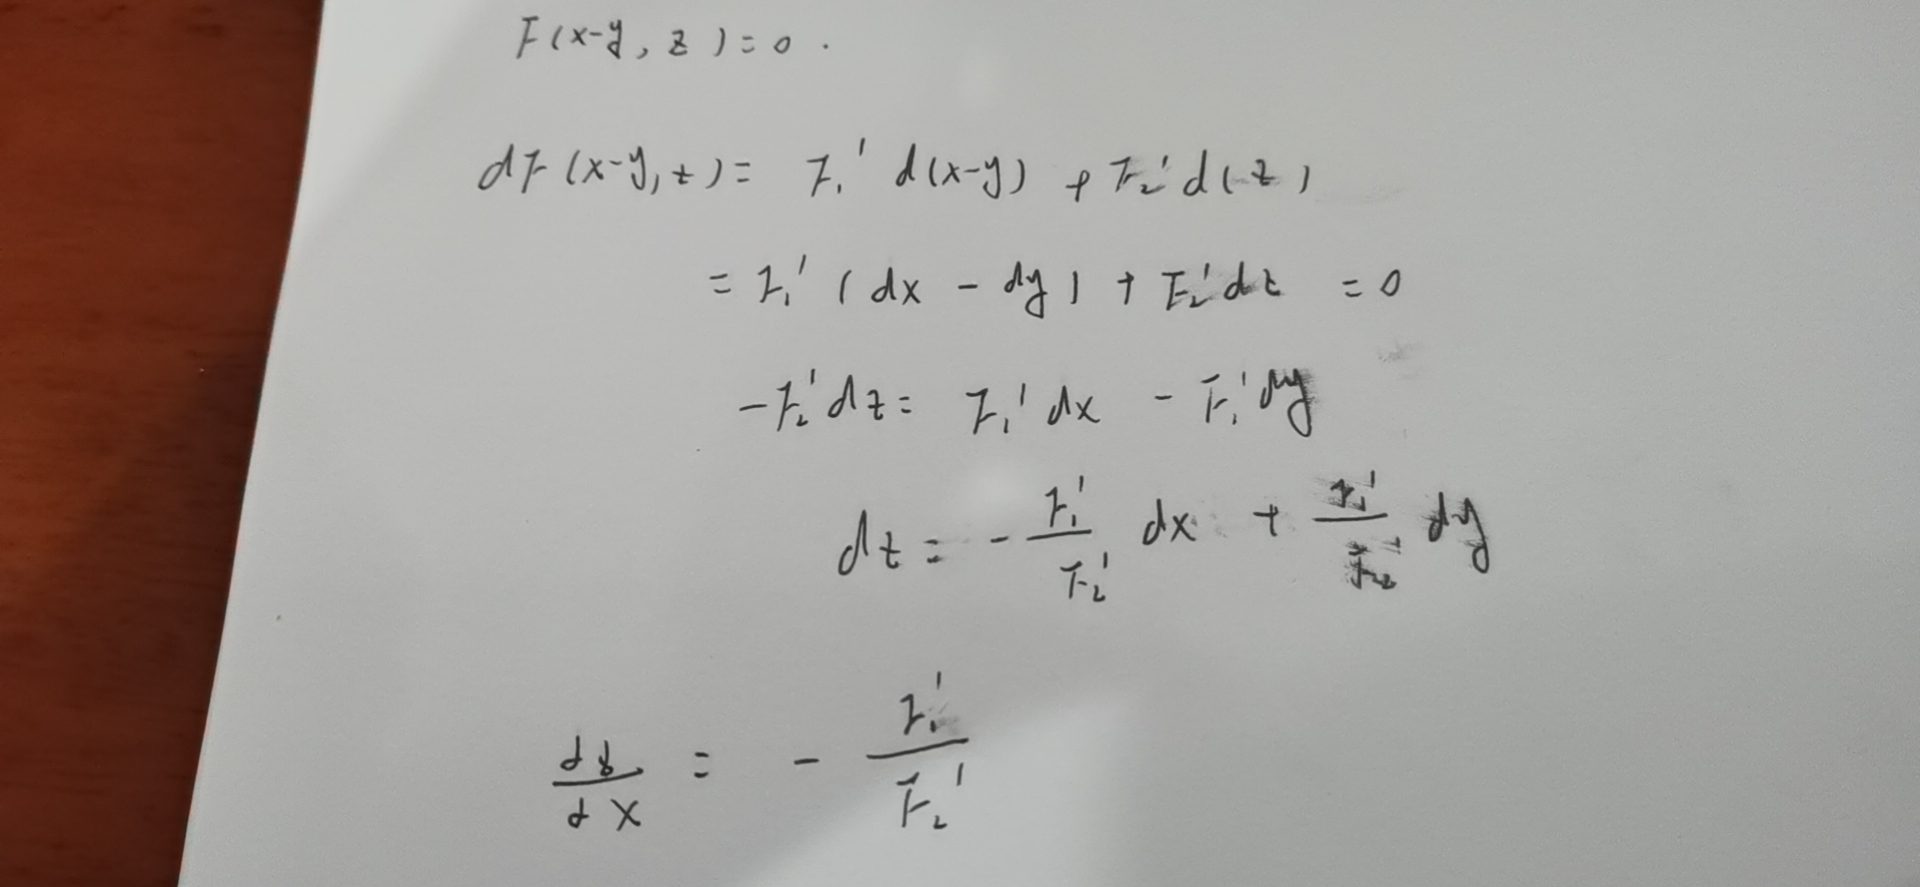 F(x-y, z) = 0.
dF(x-y, z) = F₁' d(x-y) + F₂' d(z)
= F₁' (dx - dy) + F₂' dz = 0
-F₂' dz = F₁' dx - F₁' dy
dz = - F₁'/F₂' dx + F₁'/F₂' dy
dz/dx = - F₁'/F₂'